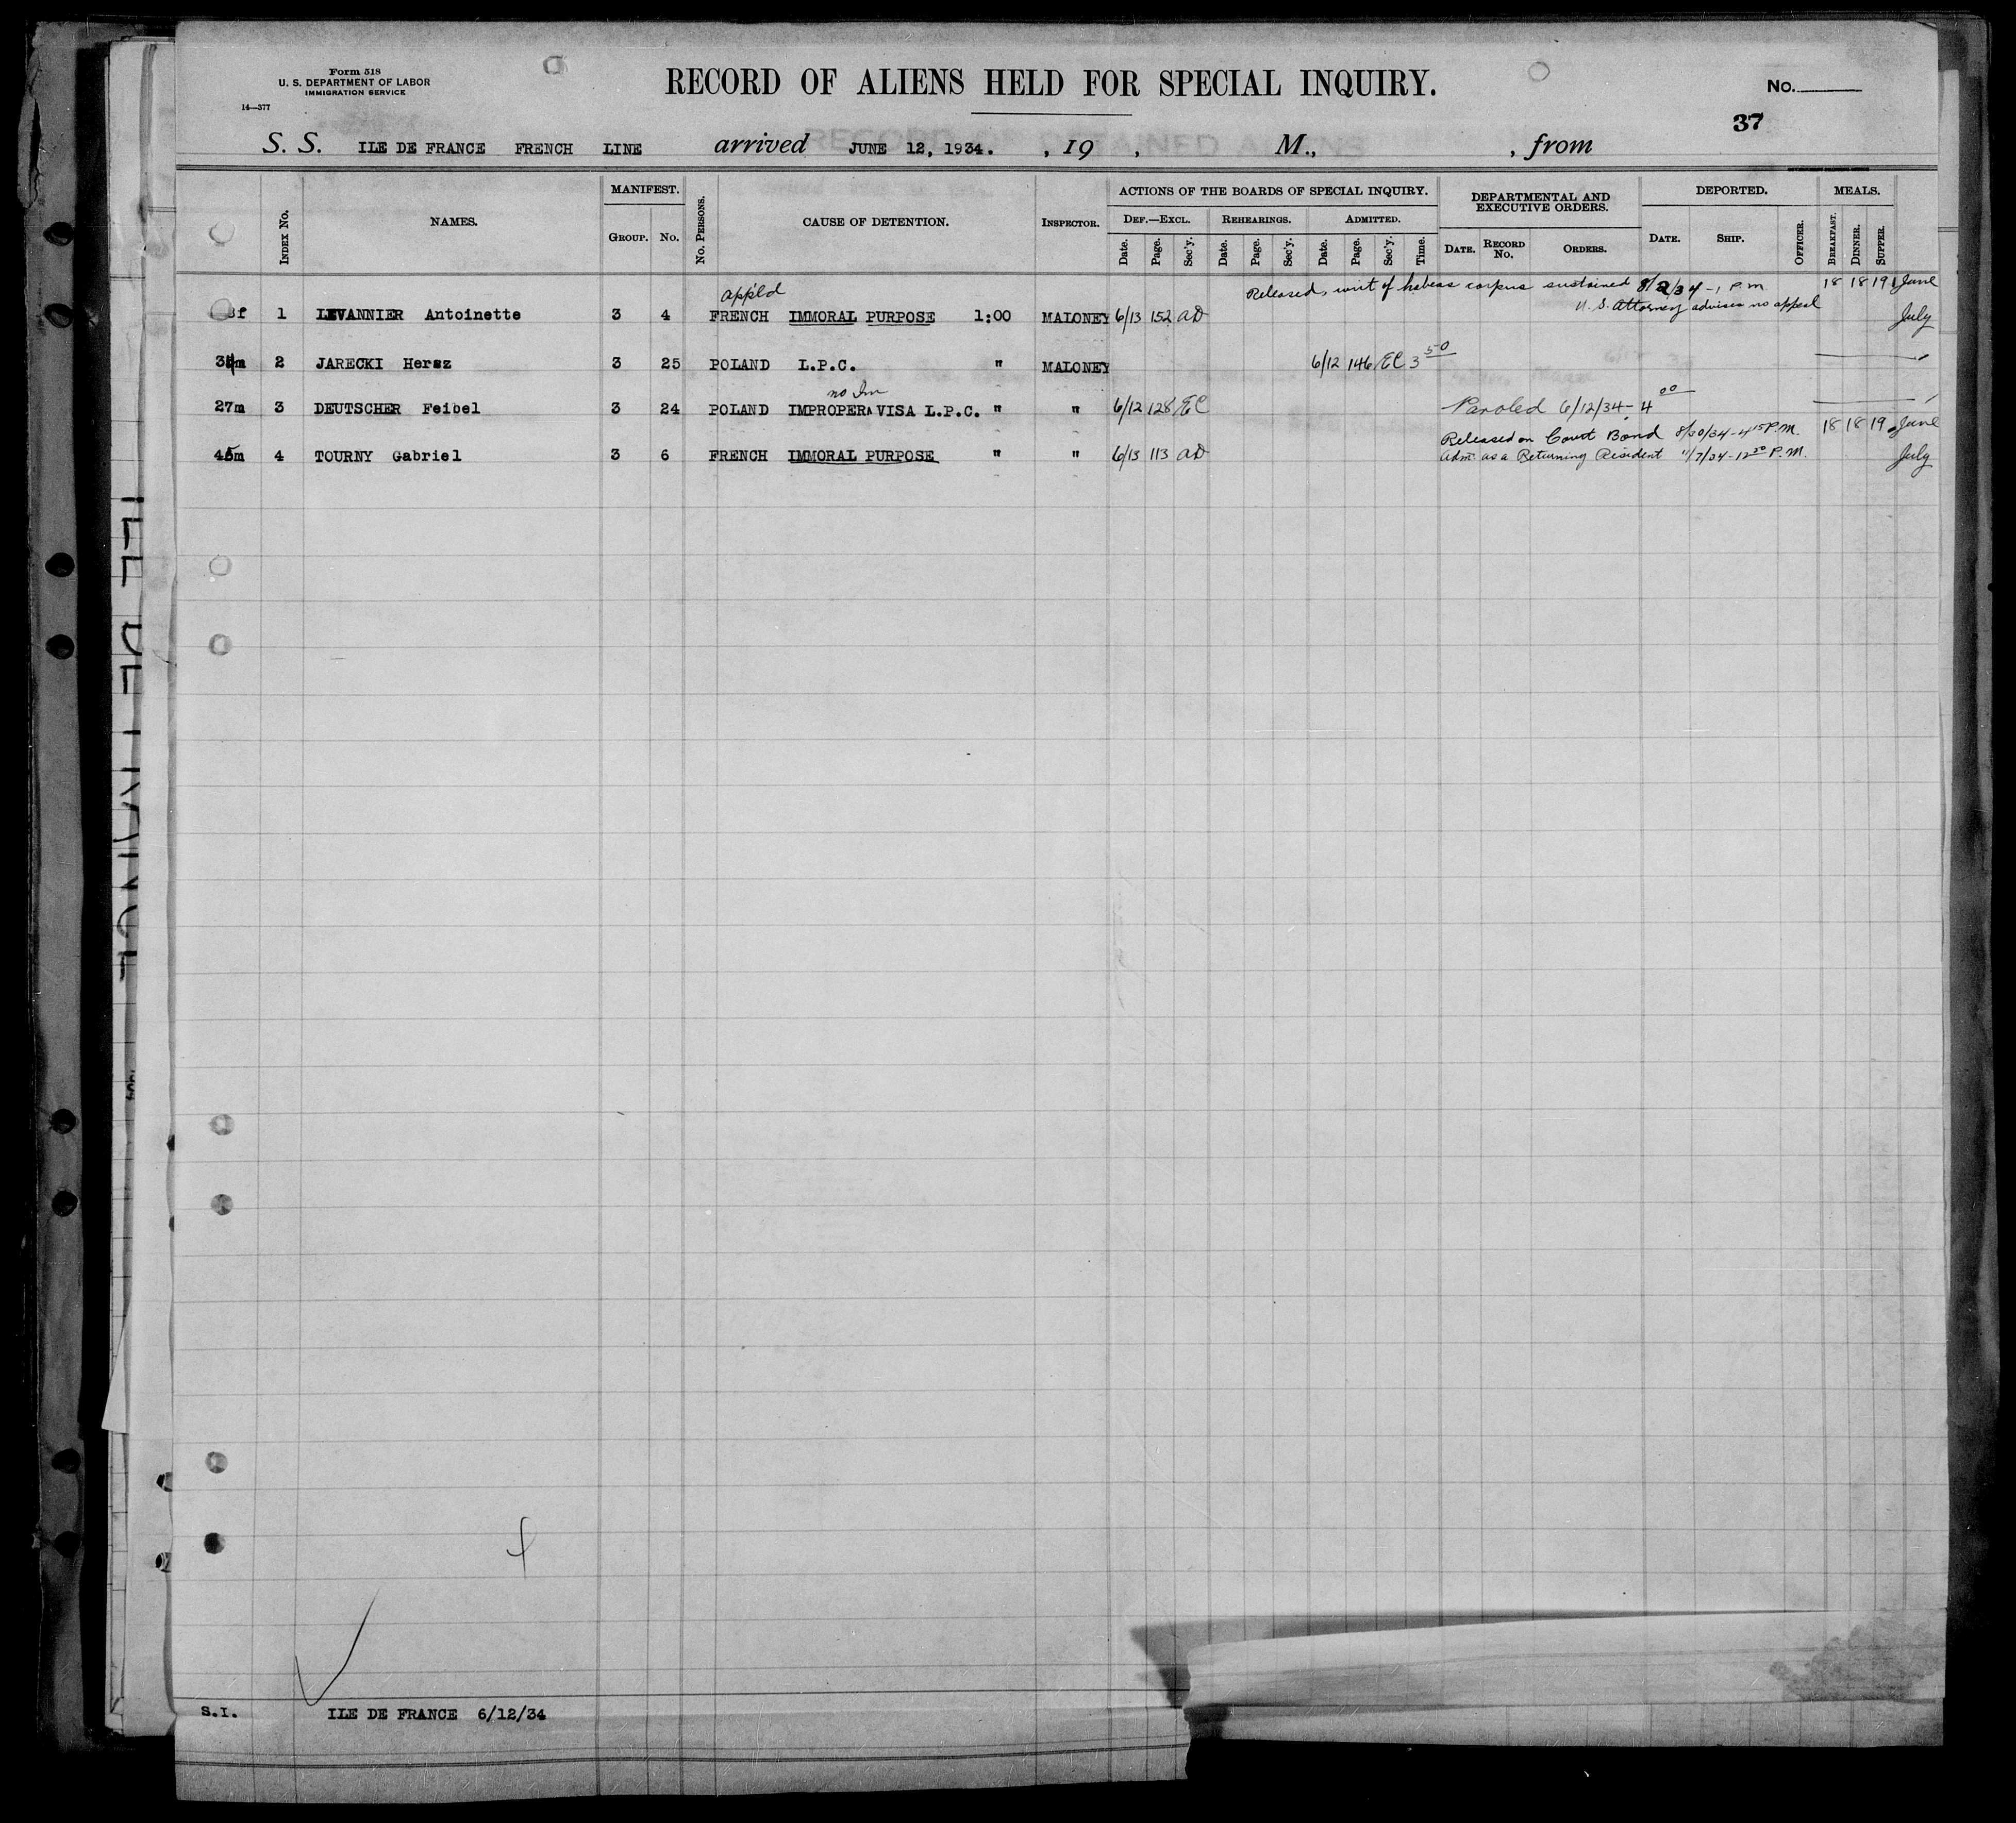 Form 518
U. S. DEPARTMENT OF LABOR
IMMIGRATION SERVICE
14—377
RECORD OF ALIENS HELD FOR SPECIAL INQUIRY.
No.
37
S. S. ILE DE FRANCE FRENCH LINE arrived JUNE 12, 1934. , 19 , M., , from
INDEX No. NAMES. MANIFEST. GROUP. No. No. PERSONS. CAUSE OF DETENTION. INSPECTOR. ACTIONS OF THE BOARDS OF SPECIAL INQUIRY. DEF.—EXCL. Date. Page. Sec'y. REHEARINGS. Date. Page. Sec'y. ADMITTED. Date. Page. Sec'y. Time. DEPARTMENTAL AND EXECUTIVE ORDERS. DATE. RECORD No. ORDERS. DEPORTED. DATE. SHIP. OFFICER. MEALS. BREAKFAST. DINNER. SUPPER.
app'ld Released, writ of habeas corpus sustained 8/2/34 - 1 P.M 18 18 19 June
U. S. Attorney advises no appeal
1 LEVANNIER Antoinette 3 4 FRENCH IMMORAL PURPOSE 1:00 MALONEY 6/13 152 AD July
2 JARECKI Hersz 3 25 POLAND L.P.C. " MALONEY 6/12 146 EC 3 50
no Im
27m 3 DEUTSCHER Feibel 3 24 POLAND IMPROPER VISA L.P.C. " " 6/12 128 EC Paroled 6/12/34 - 4 00
Released on Court Bond 8/30/34 - 4 15 P.M. 18 18 19 June
45m 4 TOURNY Gabriel 3 6 FRENCH IMMORAL PURPOSE " " 6/13 113 AD Adm. as a Returning Resident 11/7/34 - 12 30 P.M. July
S.I. ILE DE FRANCE 6/12/34
ILE DE FRANCE